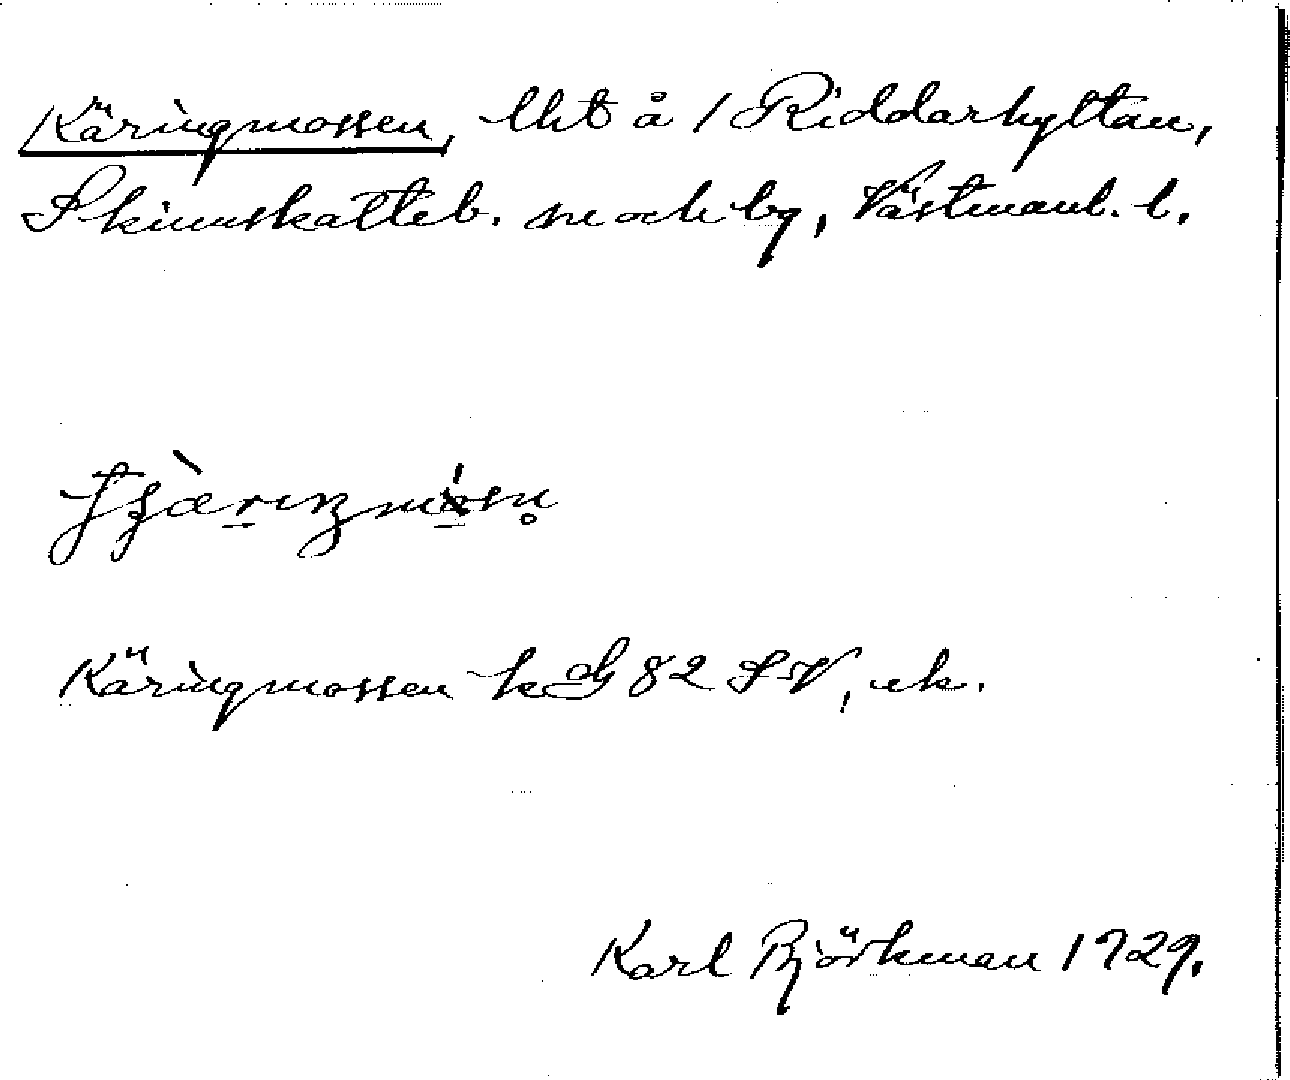 Käringmossen, lht å 1 Riddarhyttan,
Skinnskatteb. sn och by, Västmanl. l.
Käringmossen k G 82 SV, ek.
Karl Björkman 1929.